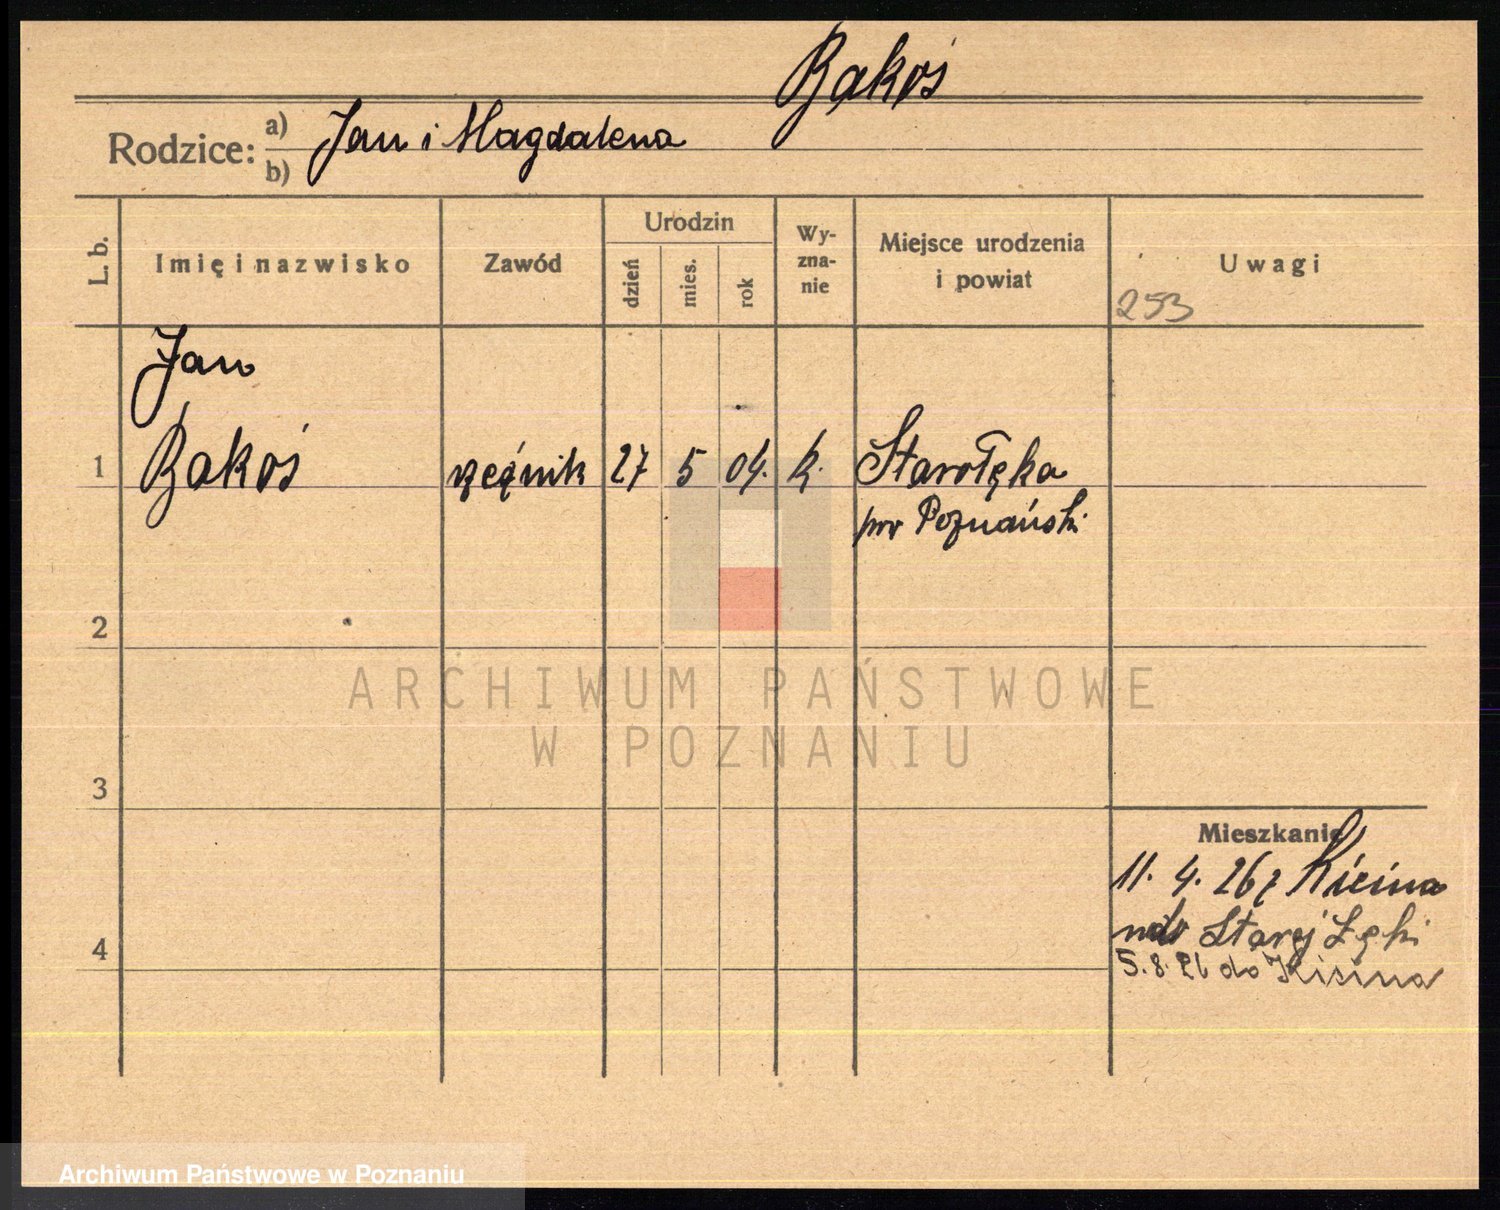 Bąkoś
Rodzice: a) Jan i Magdalena
b)
L. b.
Imię i nazwisko
Zawód
Urodzin
dzień
mies.
rok
Wy-
zna-
nie
Miejsce urodzenia
i powiat
Uwagi
253
Jan
1 Bąkoś rzeźnik 27 5 04. k. Starołęka
pow Poznański
2
3
4
Mieszkanie
11. 4. 26 z Kicina
Starej Łęki
5. 8. 26 do Kicina
ARCHIWUM PAŃSTWOWE
W POZNANIU
Archiwum Państwowe w Poznaniu